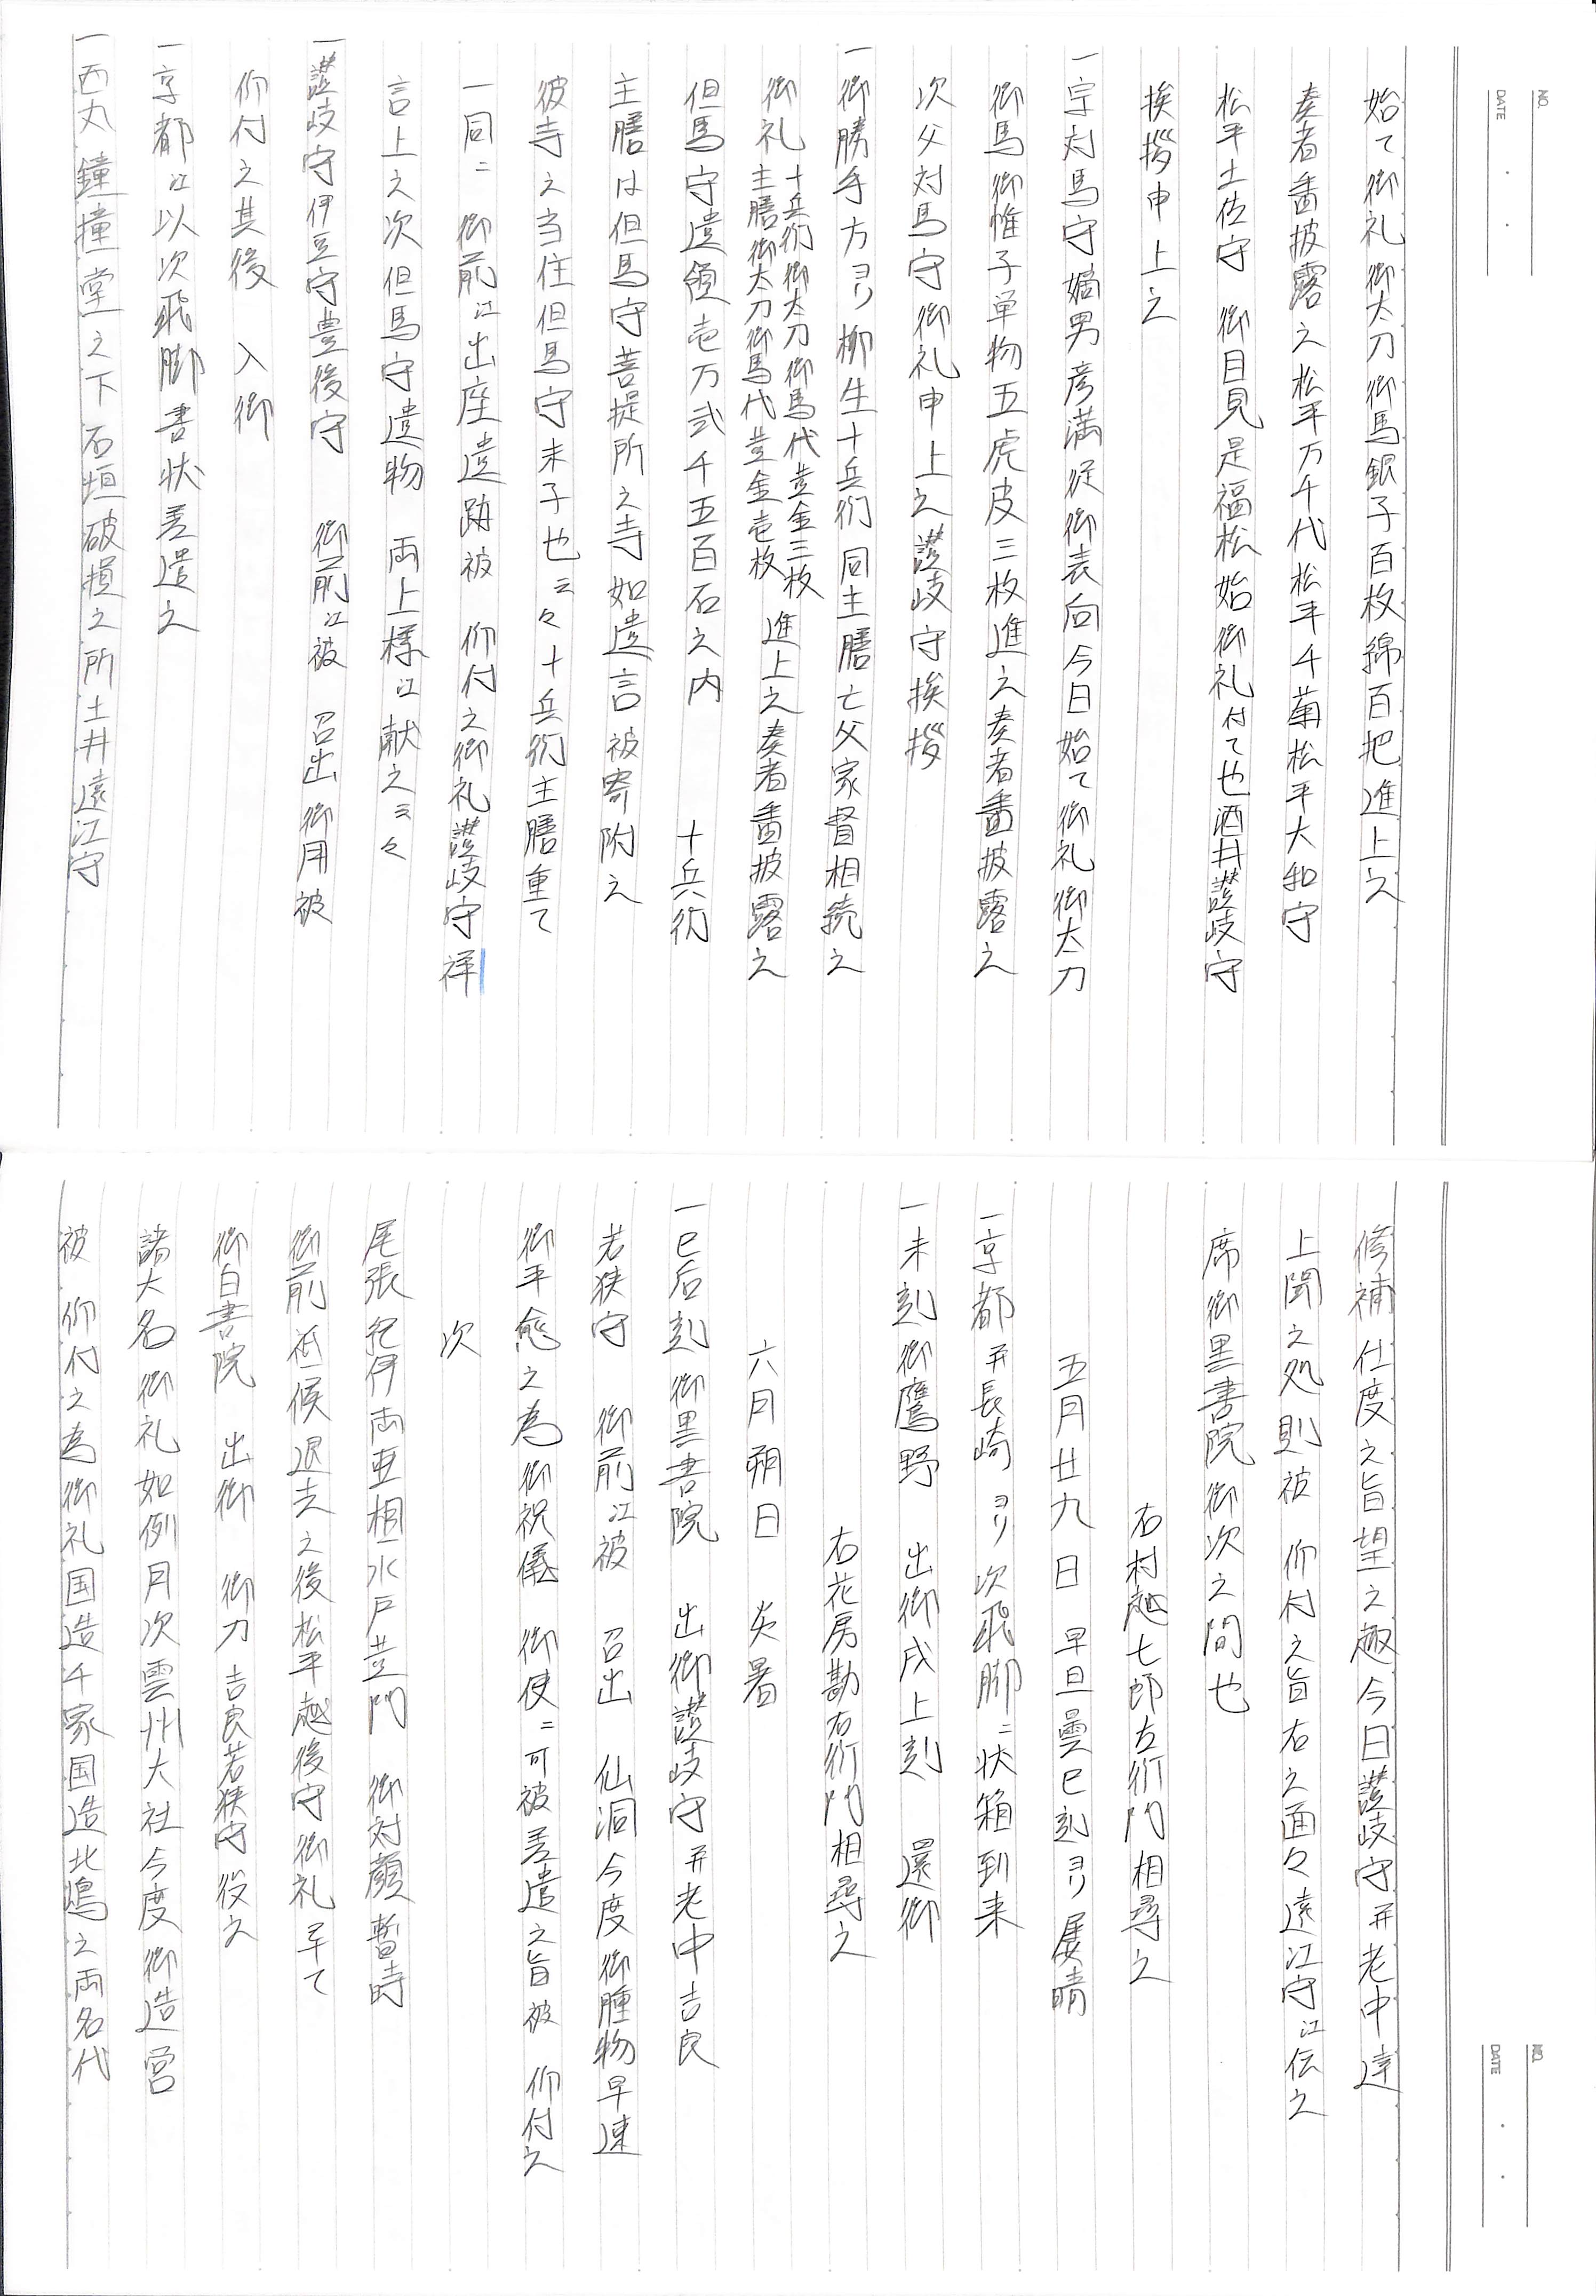 NO.
DATE
始て御礼御太刀御馬銀子百枚綿百把進上之
奏者番披露之松平万千代松平千菊松平大和守
松平土佐守　御目見是福松始御礼付て也酒井讃岐守
挨拶申上之
一宗対馬守嫡男彦満従御表向今日始て御礼御太刀
御馬御帷子単物五虎皮三枚進之奏者番披露之
次父対馬守御礼申上之讃岐守挨拶
一御勝手方ヨリ柳生十兵衛同主膳亡父家督相続之
御礼 十兵衛御太刀御馬代黄金三枚 主膳御太刀御馬代黄金壱枚 進上之奏者番披露之
但馬守遺領壱万弐千五百石之内　十兵衛
主膳は但馬守菩提所之寺如遺言被寄附之
彼寺之当住但馬守末子也云々十兵衛主膳重て
一同ニ　御前江出座遺跡被　仰付之御礼讃岐守祥
言上之次但馬守遺物　両上様江献之云々
一讃岐守伊豆守豊後守　御前江被　召出御用被
仰付之其後　入御
一京都江以次飛脚書状差遣之
一西丸鐘撞堂之下石垣破損之所土井遠江守
NO.
DATE
修補仕度之旨望之趣今日讃岐守并老中達
上聞之処則被　仰付之旨右之面々遠江守江伝之
席御黒書院御次之間也
右村越七郎左衛門相尋之
五月廿九日　早旦曇巳刻ヨリ屡晴
一京都并長崎ヨリ次飛脚ニ状箱到来
一未刻御鷹野　出御戌上刻　還御
右花房勘右衛門相尋之
六月朔日　炎暑
一巳后刻御黒書院　出御讃岐守并老中吉良
若狭守　御前江被　召出　仙洞今度御腫物早速
御平愈之為御祝儀　御使ニ可被差遣之旨被　仰付之
次
尾張紀伊両亜相水戸黄門　御対顔暫時
御前祗候退去之後松平越後守御礼卒て
御白書院　出御　御刀吉良若狭守役之
諸大名御礼如例月次雲州大社今度御造営
被　仰付之為御礼国造千家国造北嶋之両名代